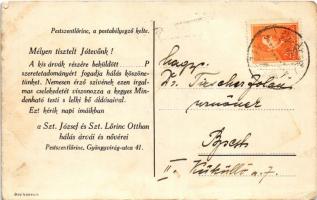 Pestszentlőrinc, a postabélyegző kelte.
Mélyen tisztelt Jótevőnk !
A kis árvák részére beküldött ............ P
szeretetadományért fogadja hálás köszöne-
tünket. Nemesen érző szívének ezen irgal-
mas cselekedetét viszonozza a kegyes Min-
denható testi s lelki bő áldásaival.
Ezt kérik napi imáikban
a Szt. József és Szt. Lőrinc Otthon
hálás árvái és nővérei
Pestszentlőrinc, Gyöngyvirág-utca 41.
Nagys.
Dr. Zoltán
Bpest
II. Küküllő u. 7.